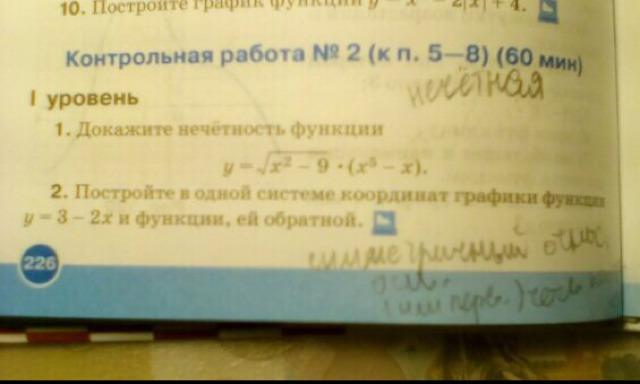 10. Постройте график функции y = x² − 2|x| + 4.
Контрольная работа № 2 (к п. 5—8) (60 мин)
нечётная
I уровень
1. Докажите нечётность функции
y = √x² − 9 · (x⁵ − x).
2. Постройте в одной системе координат графики функции
y = 3 − 2x и функции, ей обратной.
226